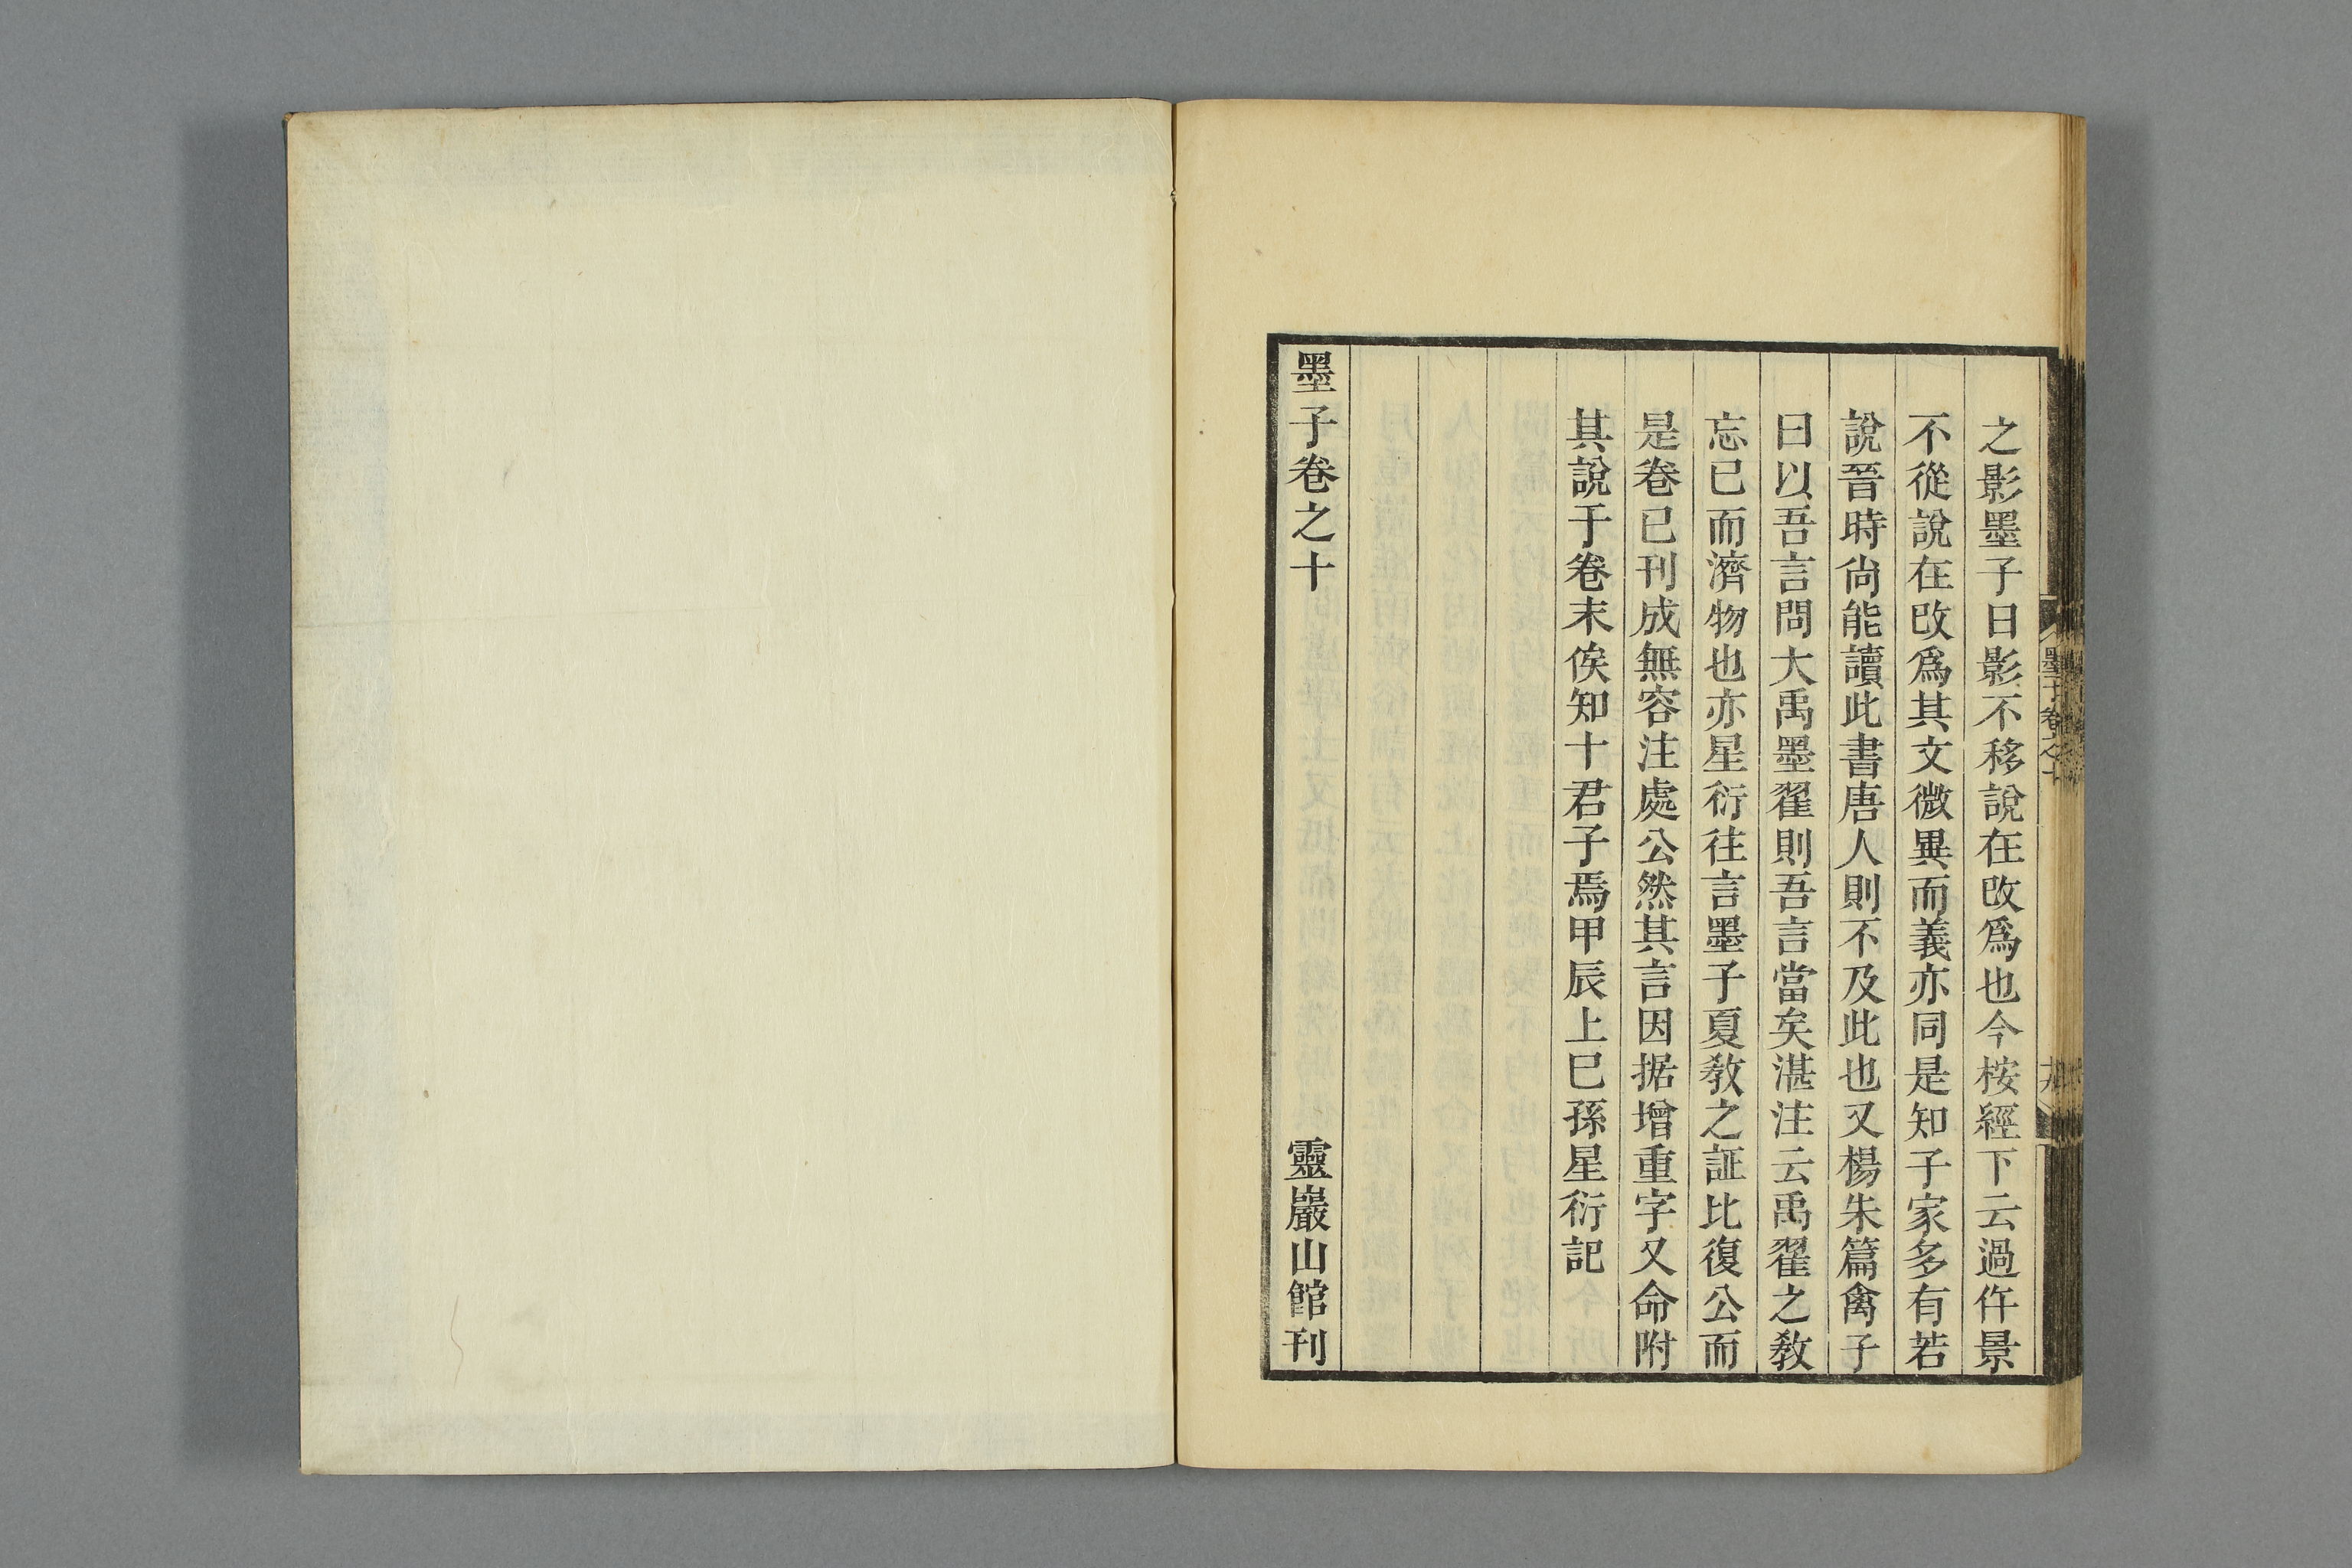 之影墨子曰影不移說在改爲也今桉經下云過仵景
不從說在改爲其文微異而義亦同是知子家多有若
說晉時尙能讀此書唐人則不及此也又楊朱篇禽子
曰以吾言問大禹墨翟則吾言當矣湛注云禹翟之教
忘已而濟物也亦星衍往言墨子夏教之証比復公而
是卷已刊成無容注處公然其言因据增重字又命附
其說于卷末俟知十君子焉甲辰上巳孫星衍記
墨子卷之十
靈巖山館刊
墨子卷之十